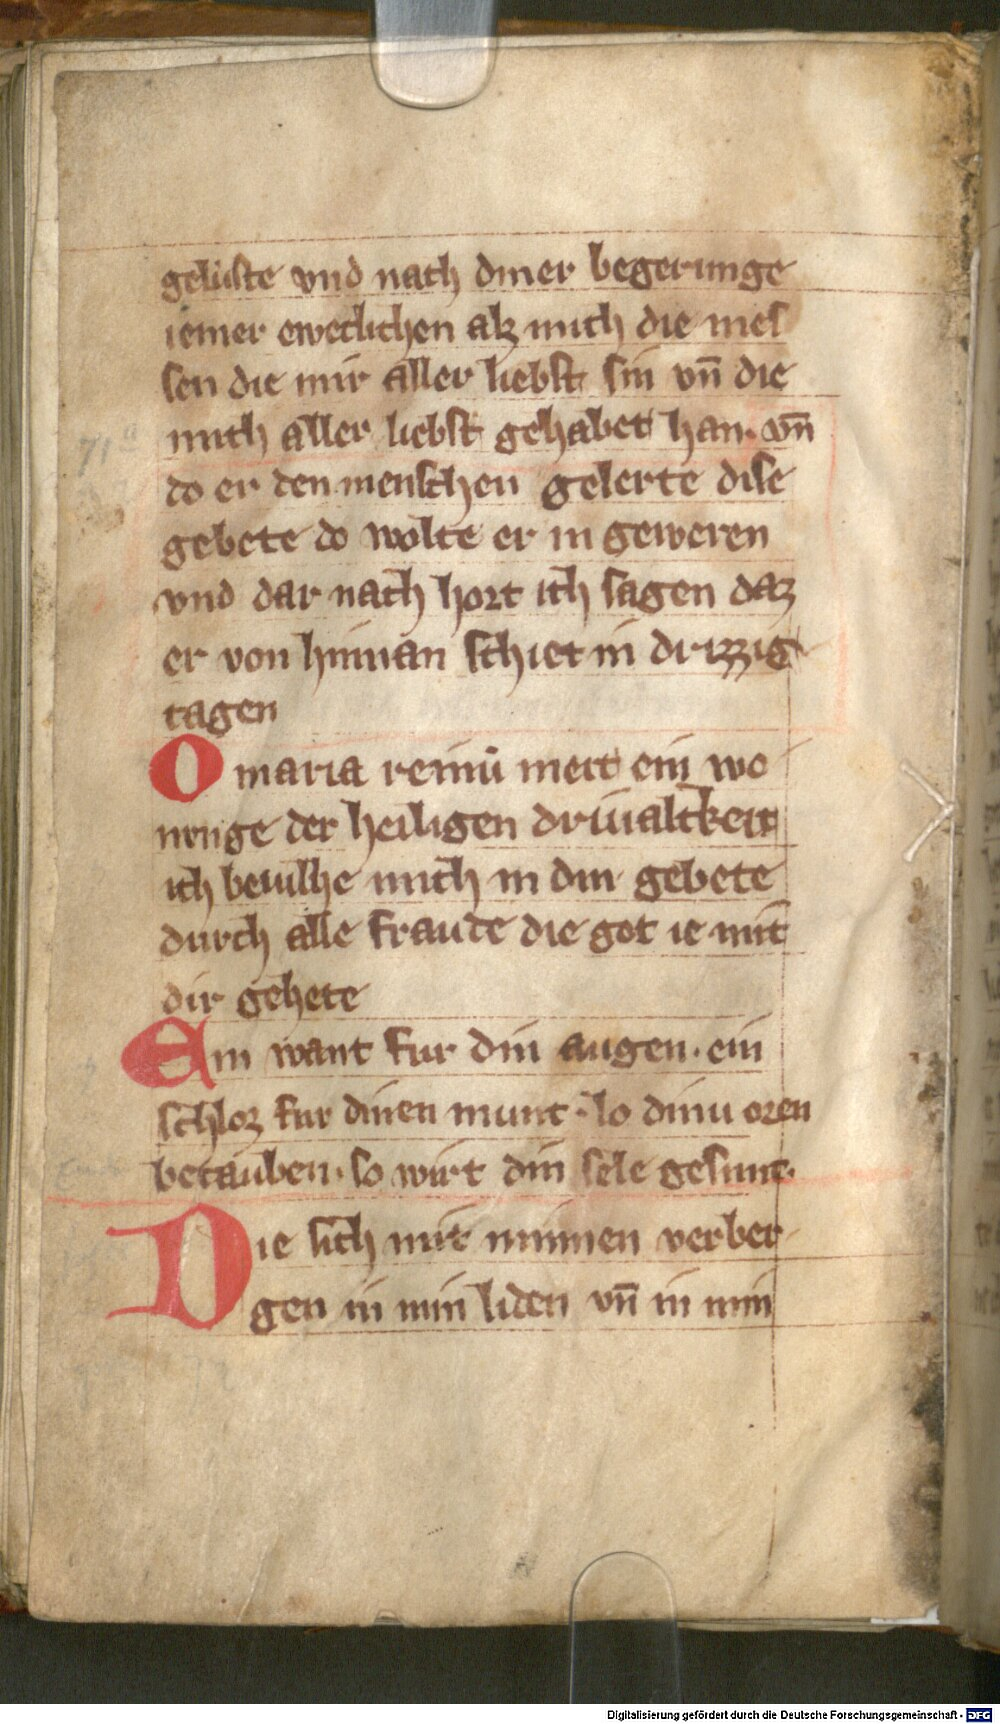 geluste vnd nach diner begerunge
iemer eweclichen alz mich die mes
sen die mir aller liebst sin vn̄ die
mich aller liebst gehabet han. vn̄
do er den menschen gelerte dise
gebete do wolte er in geweren
vnd dar nach hort ich sagen daz
er von hinnan schiet in drizzig
tagen
O maria reiniu meit ein wo
nunge der heiligen driualtkeit
ich beuilhe mich in din gebete
durch alle fraude die got ie mit
dir gehete
Ein want fur din augen. ein
schloz fur dinen munt. lo diniu oren
betauben. so wirt din sele gesunt.
Die sich mit minnen verber
gen in min liden vn̄ in min
Digitalisierung gefördert durch die Deutsche Forschungsgemeinschaft - DFG